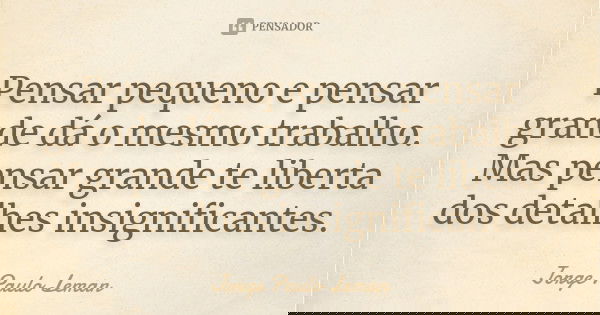 PENSADOR
Pensar pequeno e pensar
grande dá o mesmo trabalho.
Mas pensar grande te liberta
dos detalhes insignificantes.
Jorge Paulo Leman